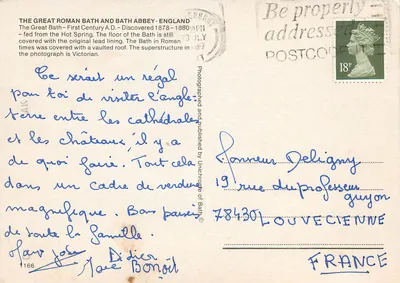 THE GREAT ROMAN BATH AND BATH ABBEY - ENGLAND
The Great Bath - First Century A.D. - Discovered 1878-1880
- fed from the Hot Spring. The floor of the Bath is still
covered with the original lead lining. The Bath in Roman
times was covered with a vaulted roof. The superstructure in
the photograph is Victorian.
Be properly
addressed
POSTCO
18P
Photographed and published by Unichrome of Bath ©
Ce serait un régal
pour toi de visiter l'angle-
terre entre les cathédrales
et les châteaux, il y a
de quoi faire. Tout cela
dans un cadre de verdure
magnifique. Bons
de toute la famille.
Didier
Benoît
166
Monsieur Deligny
19 rue du professeur
guyon
78430 LOUVECIENNE
FRANCE